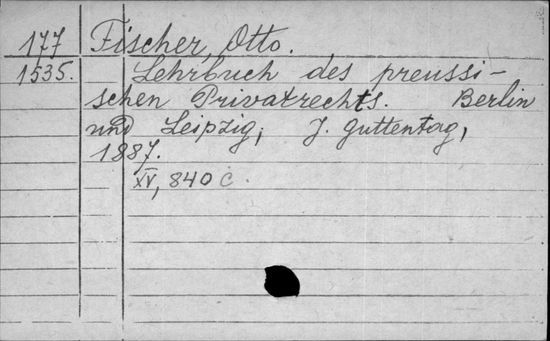 177 Fischer, Otto.
1535. Lehrbuch des preussi-
schen Privatrechts. Berlin
und Leipzig, J. Guttentag,
1887.
XV, 840 c.